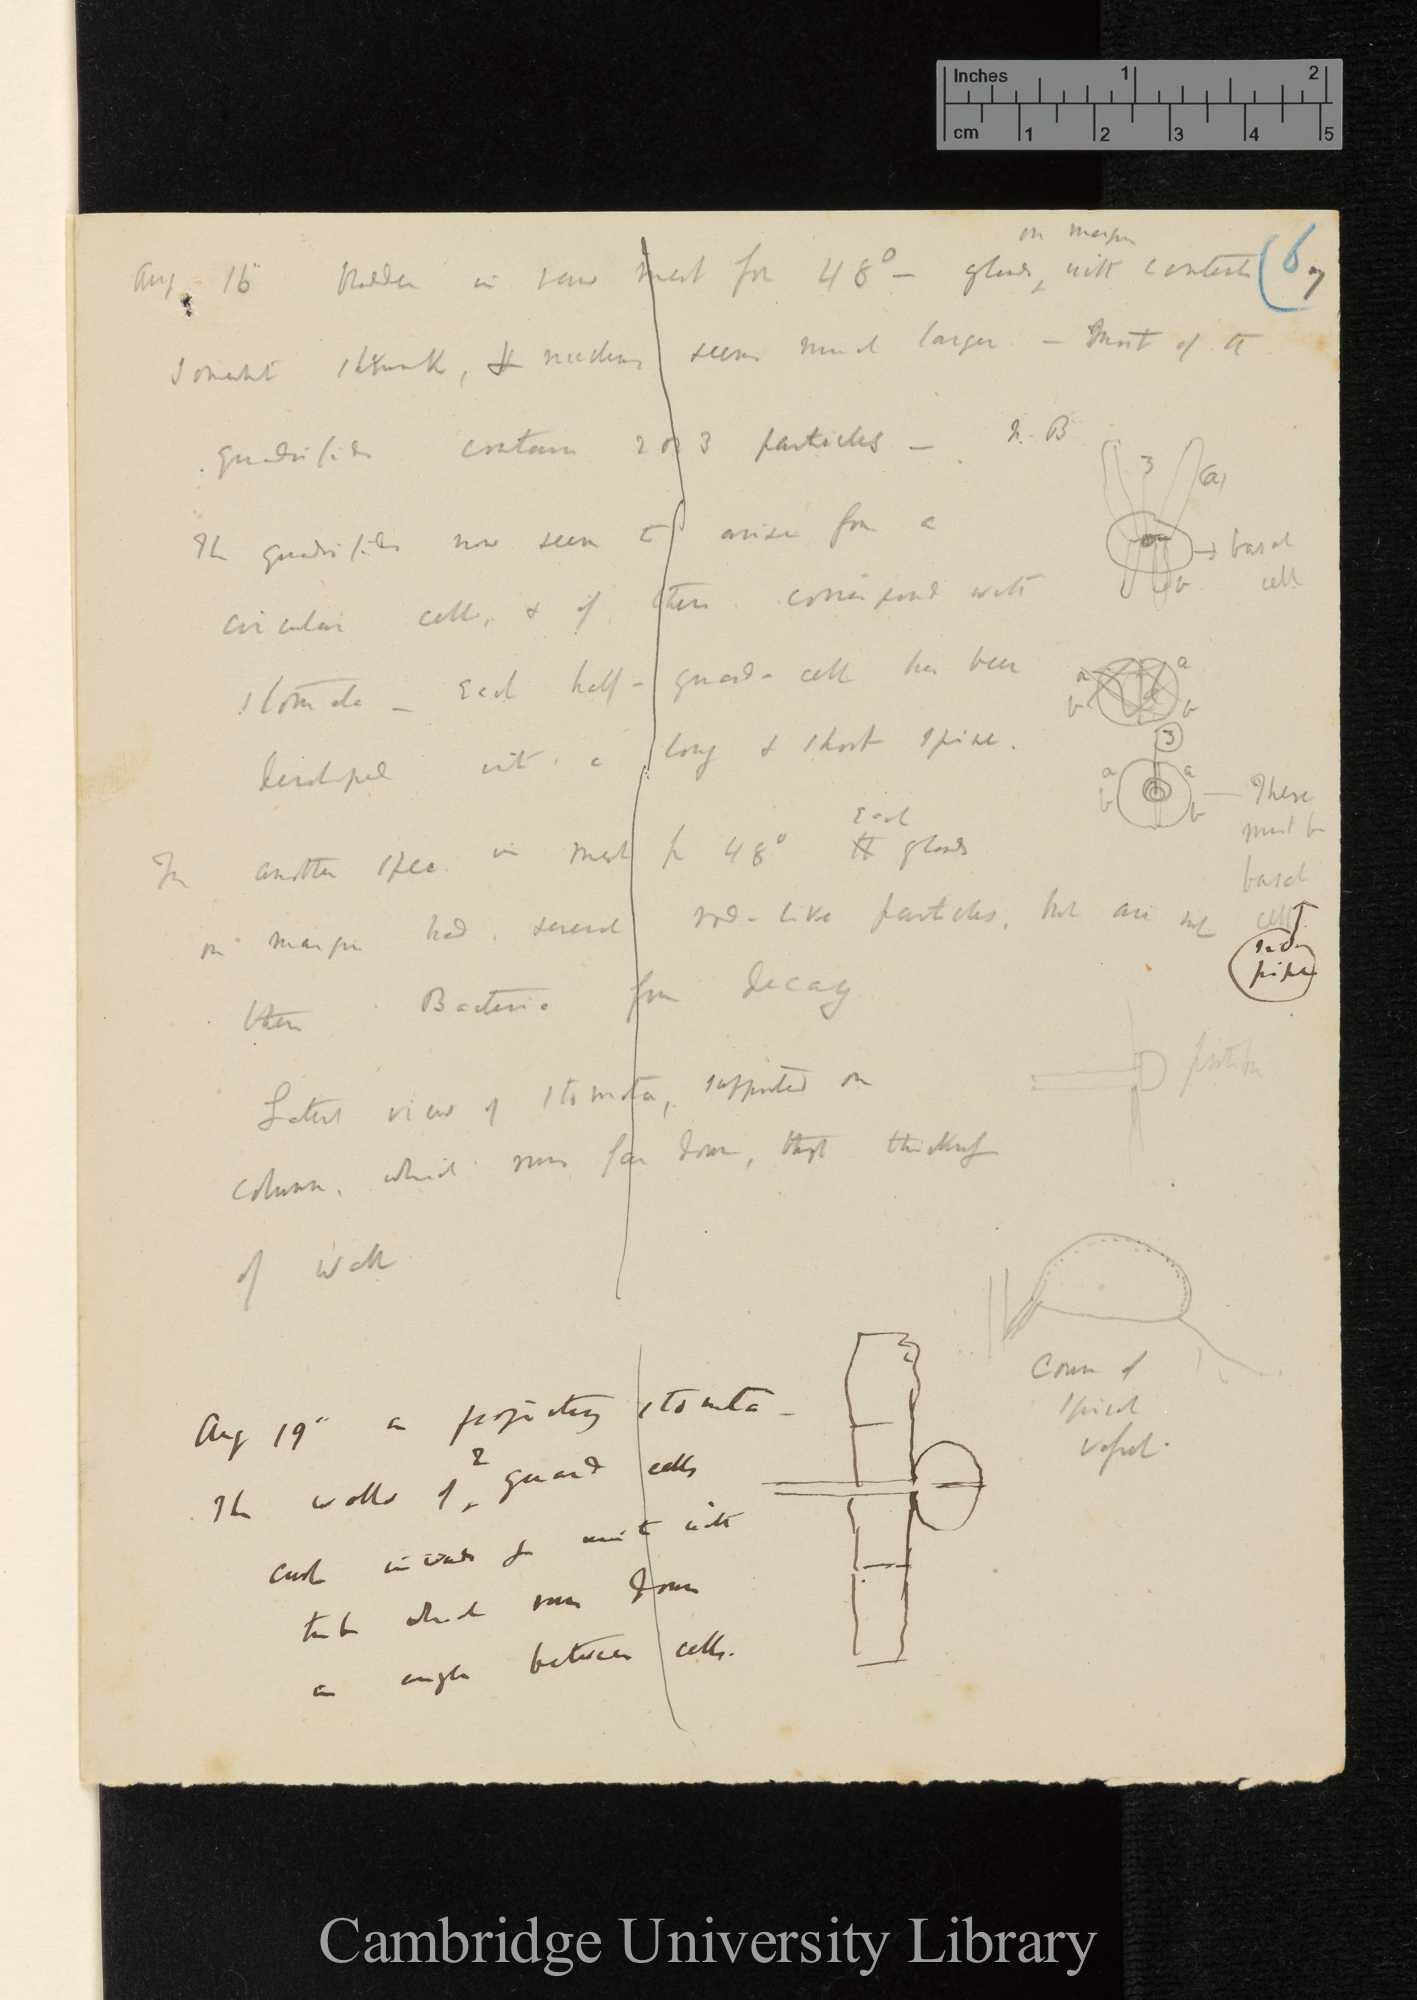 Inches 1 2
cm 1 2 3 4 5
on margin
(6
Aug 16 Bladder in raw meat for 48° — glands, with contents
somewhat shrunk, & nucleus seems much larger. — Most of the
quadrifids contain 2 or 3 particles — N. B
3 (a)
The quadrifids now seem to arise from a
→ basal
cell
circular cell, & if then correspond with
b b
stomata — Each half-guard-cell has been
a a
b b
developed into a long & short spine.
3
a a
b b
— These
must be
basal
cells
Each
In another spec. in meat for 48° glands
on margin had several rod-like particles, but are not
these Bacteria from decay
Lateral view of stomata, supported on
column, which runs far down, through thickness
of wall
Aug 19 a projecting stomata —
The walls of 2 guard cells
curl inwards & unite with
tube which runs down
in angle between cells.
Course of
spiral
vessel.
Cambridge University Library